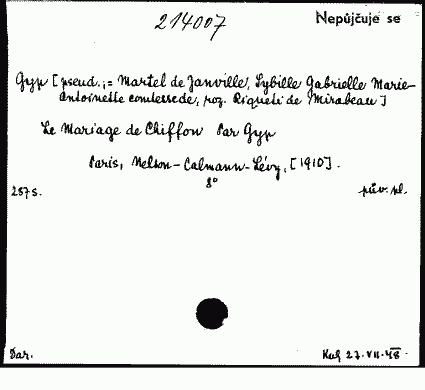 214007
Nepůjčuje se
Gyp [pseud.;= Martel de Janville, Sybille Gabrielle Marie-
Antoinette comtesse de, roz. Riqueti de Mirabeau]
Le Mariage de Chiffon Par Gyp
Paris, Nelson-Calmann-Lévy, [1910].
8°
287 s.
pův. pl.
Dar.
27.VII.48.